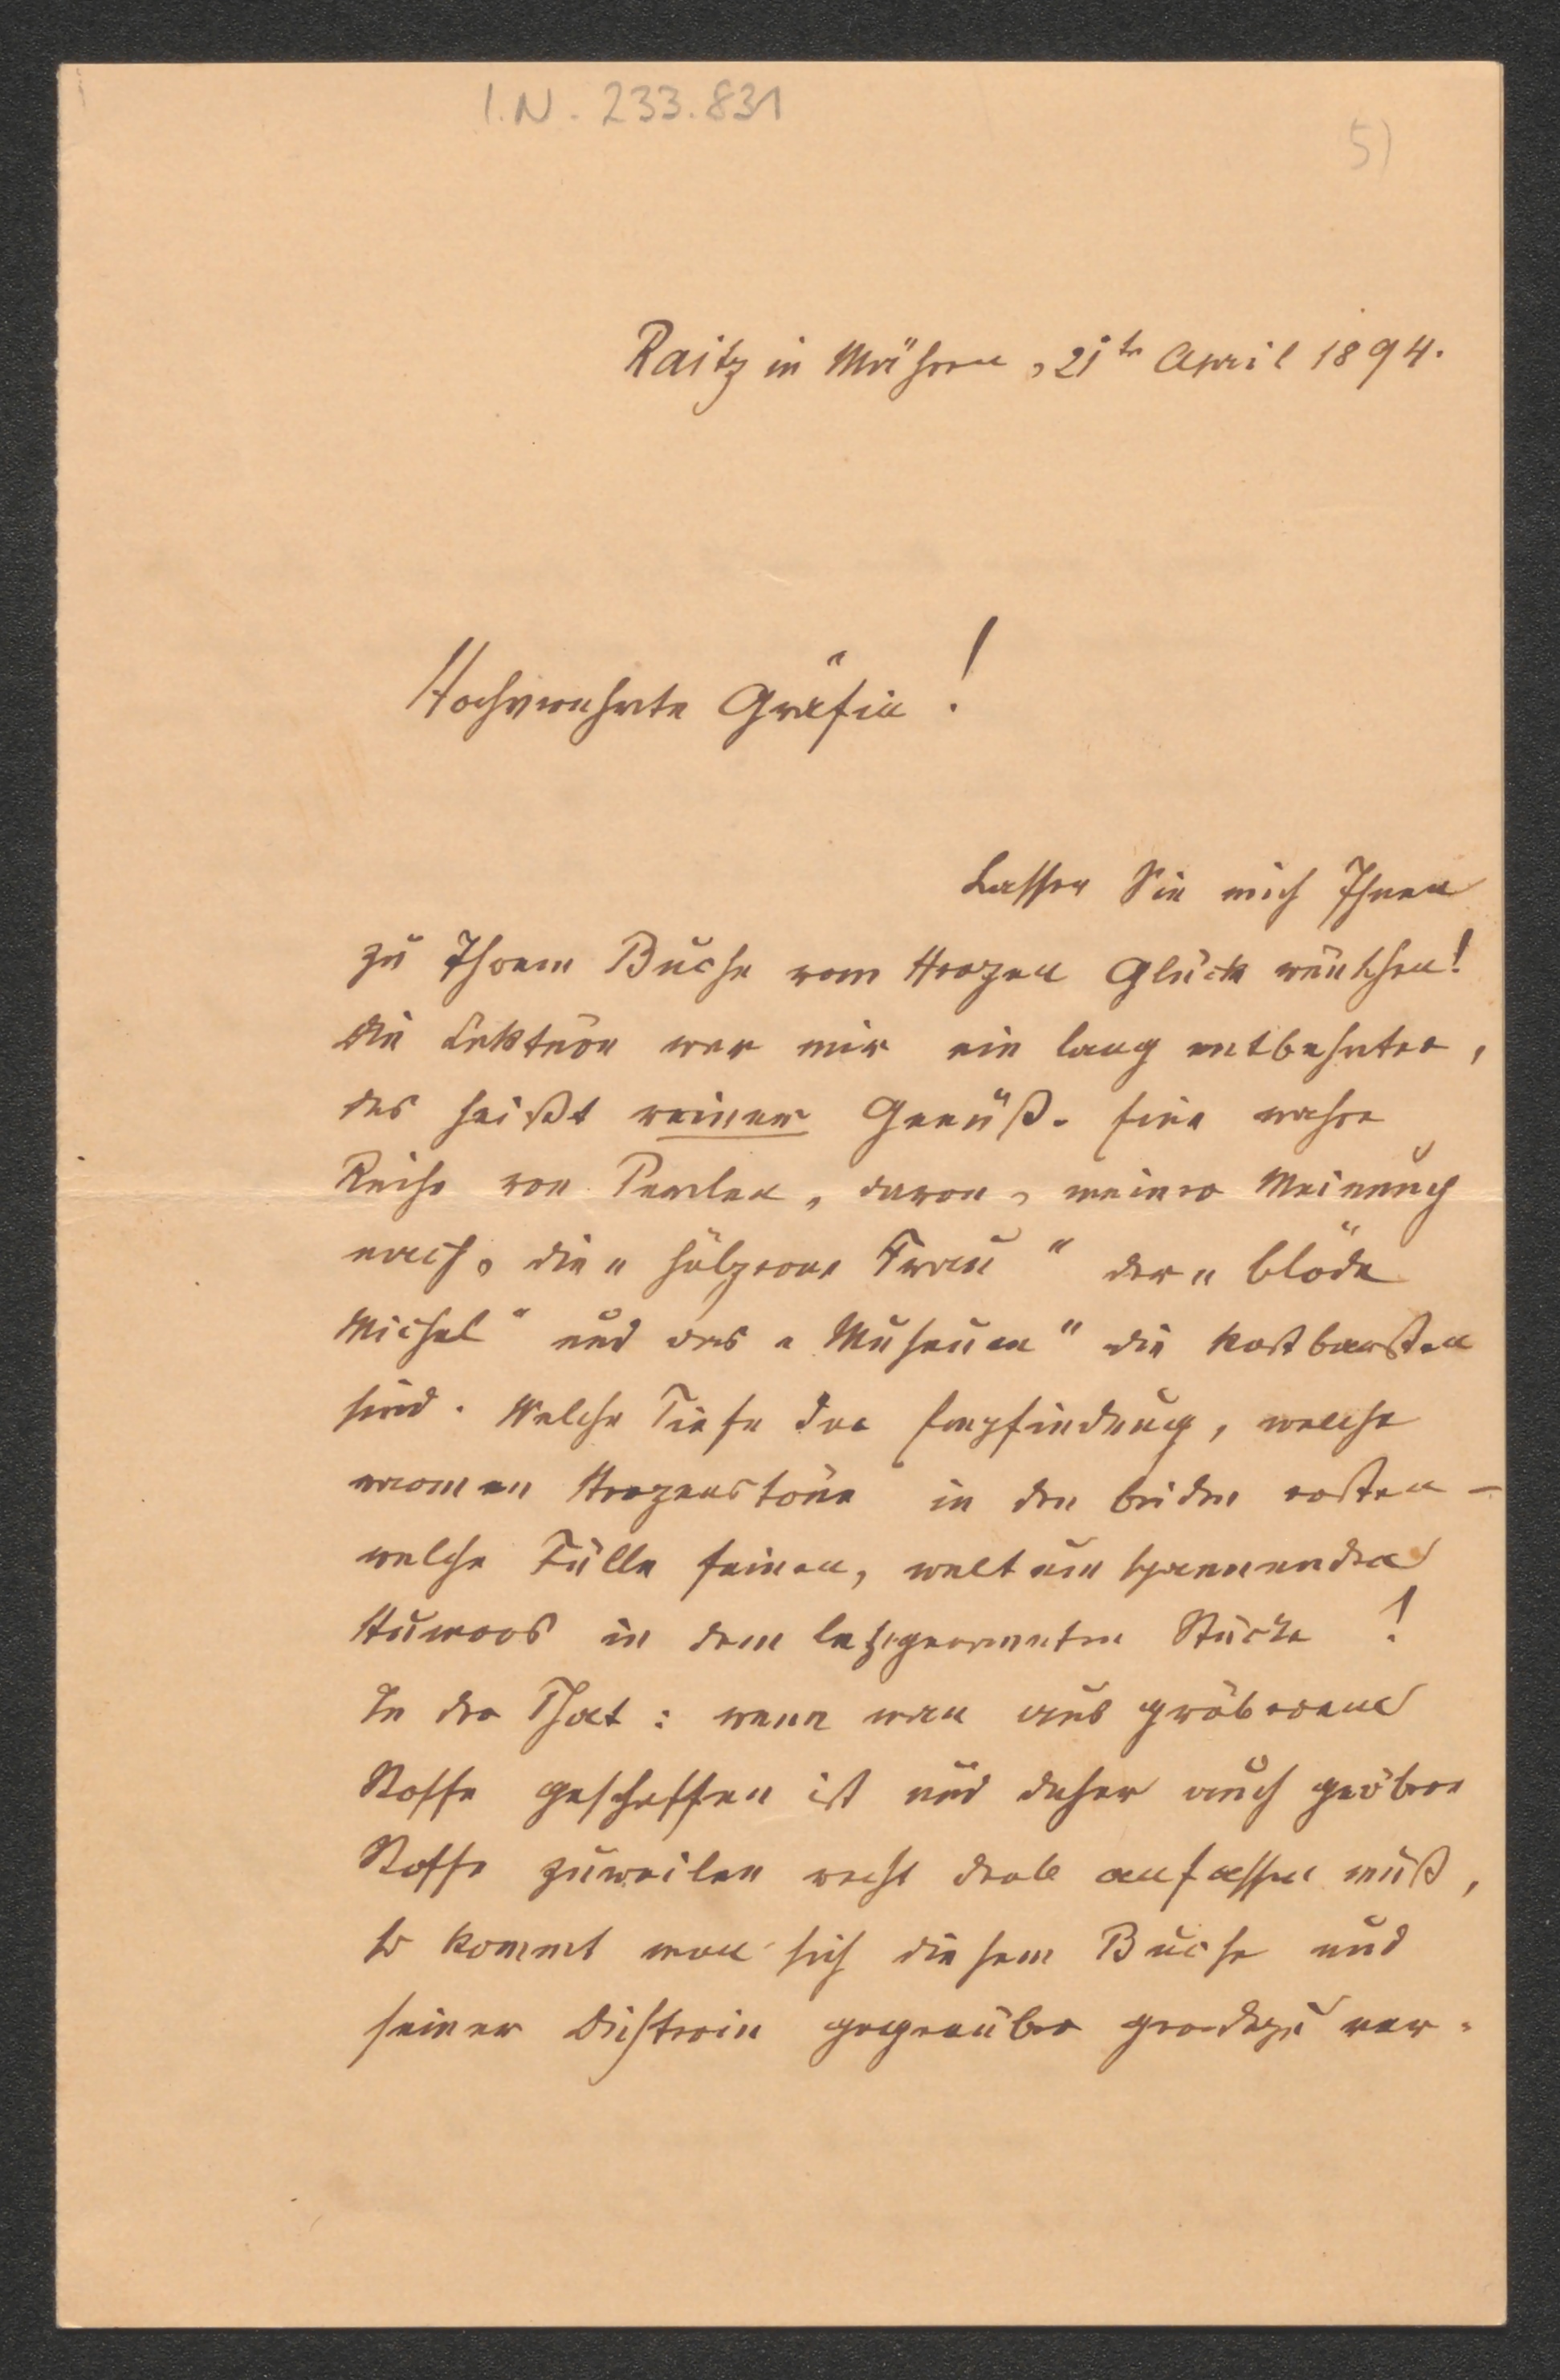 I.N. 233.831
5)
Raitz in Mähren, 21te April 1894.
Hochverehrte Gräfin!
Lassen Sie mich Ihnen
zu Ihrem Buche vom Herzen Glück wünschen!
Die Lektüre war mir ein lang entbehrter,
das heißt reiner Genuß. Eine wahre
Reihe von Perlen, davon, meiner Meinung
nach, die „hölzerne Frau“ der „blöde
Michel“ und das „Museum“ die kostbarsten
sind. Welche Tiefe der Empfindung, welche
warmen Herzenstöne in den beiden ersten –
welche Fülle feinen, weltumspannenden
Humors in dem letztgenannten Stücke!
In der That: wenn man aus gröberem
Stoffe geschaffen ist und daher auch gröbere
Stoffe zuweilen recht derb anfassen muß,
so kommt man sich diesem Buche und
seiner Dichterin gegenüber geradezu ver-